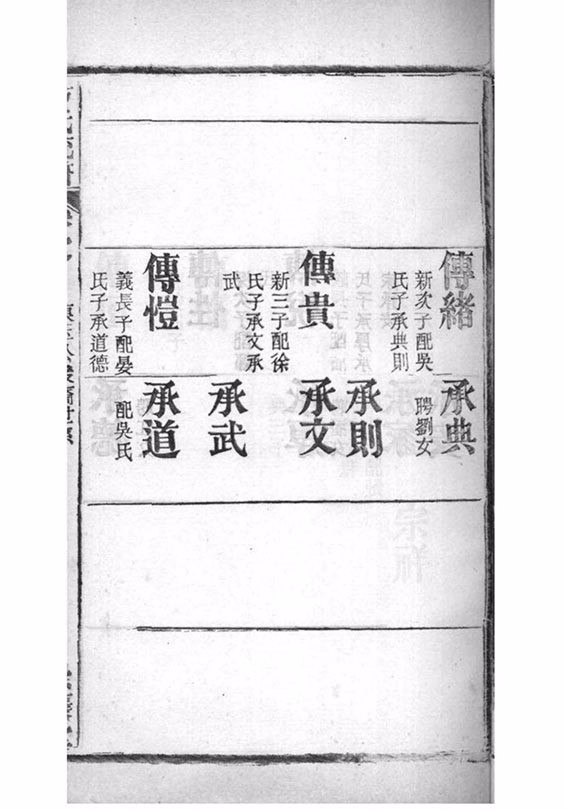 傳緒
新次子配吳
氏子承典則
傳貴
新三子配徐
氏子承文承
武
傳愷
義長子配晏
氏子承道德
承典
聘劉女
承則
承文
承武
承道
配吳氏